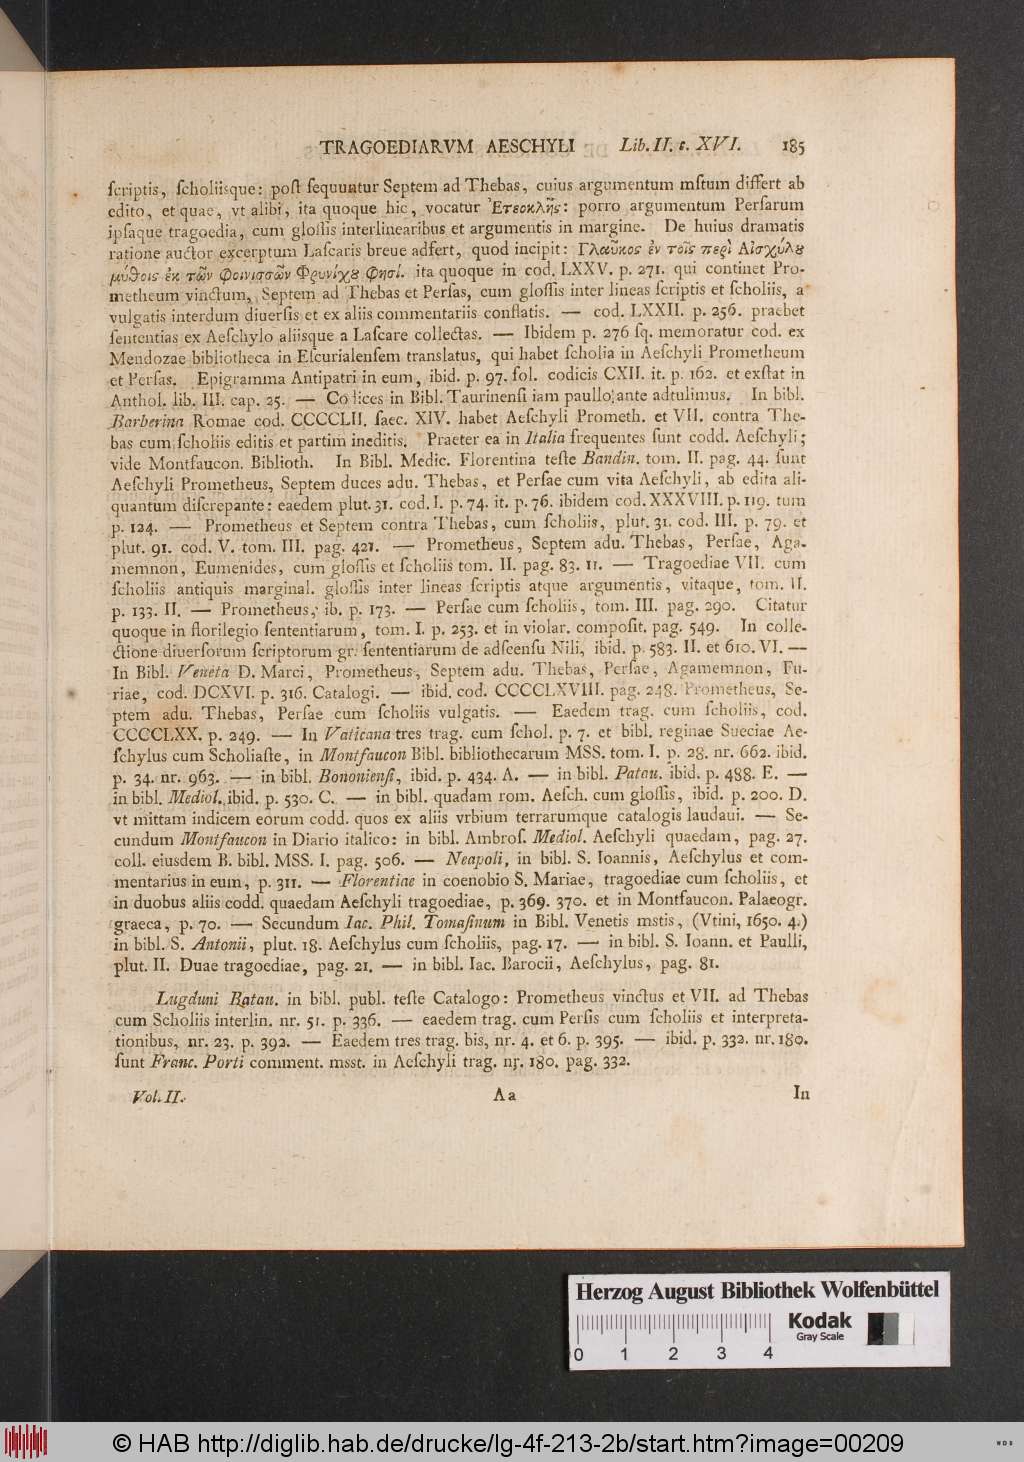 TRAGOEDIARVM AESCHYLI Lib. II. c. XVI. 185
ſcriptis, ſcholiisque: poſt ſequuntur Septem ad Thebas, cuius argumentum mſtum differt ab
edito, et quae, vt alibi, ita quoque hic, vocatur Ἐτεοκλῆς: porro argumentum Perſarum
ipſaque tragoedia, cum gloſſis interlinearibus et argumentis in margine. De huius dramatis
ratione auctor excerptum Laſcaris breue adfert, quod incipit: Γλαῦκος ἐν τοῖς περὶ Αἰσχύλȣ
μύθοις ἐκ τῶν φοινισσῶν Φρυνίχȣ φησί. ita quoque in cod. LXXV. p. 271. qui continet Pro-
metheum vinctum, Septem ad Thebas et Perſas, cum gloſſis inter lineas ſcriptis et ſcholiis, a
vulgatis interdum diuerſis et ex aliis commentariis conflatis. — cod. LXXII. p. 256. praebet
ſententias ex Aeſchylo aliisque a Laſcare collectas. — Ibidem p. 276 ſq. memoratur cod. ex
Mendozae bibliotheca in Eſcurialenſem translatus, qui habet ſcholia in Aeſchyli Prometheum
et Perſas. Epigramma Antipatri in eum, ibid. p. 97. fol. codicis CXII. it. p. 162. et exſtat in
Anthol. lib. III. cap. 25. — Codices in Bibl. Taurinenſi iam paullo ante adtulimus. In bibl.
Barberina Romae cod. CCCCLII. ſaec. XIV. habet Aeſchyli Prometh. et VII. contra The-
bas cum ſcholiis editis et partim ineditis. Praeter ea in Italia frequentes ſunt codd. Aeſchyli;
vide Montfaucon. Biblioth. In Bibl. Medic. Florentina teſte Bandin. tom. II. pag. 44. ſunt
Aeſchyli Prometheus, Septem duces adu. Thebas, et Perſae cum vita Aeſchyli, ab edita ali-
quantum diſcrepante: eaedem plut. 31. cod. I. p. 74. it. p. 76. ibidem cod. XXXVIII. p. 119. tum
p. 124. — Prometheus et Septem contra Thebas, cum ſcholiis, plut. 31. cod. III. p. 79. et
plut. 91. cod. V. tom. III. pag. 421. — Prometheus, Septem adu. Thebas, Perſae, Aga-
memnon, Eumenides, cum gloſſis et ſcholiis tom. II. pag. 83. 11. — Tragoediae VII. cum
ſcholiis antiquis marginal. gloſſis inter lineas ſcriptis atque argumentis, vitaque, tom. II.
p. 133. II. — Prometheus, ib. p. 173. — Perſae cum ſcholiis, tom. III. pag. 290. Citatur
quoque in florilegio ſententiarum, tom. I. p. 253. et in violar. compoſit. pag. 549. In colle-
ctione diuerſorum ſcriptorum gr. ſententiarum de adſcenſu Nili, ibid. p. 583. II. et 610. VI. —
In Bibl. Veneta D. Marci, Prometheus, Septem adu. Thebas, Perſae, Agamemnon, Fu-
riae, cod. DCXVI. p. 316. Catalogi. — ibid. cod. CCCCLXVIII. pag. 248. Prometheus, Se-
ptem adu. Thebas, Perſae cum ſcholiis vulgatis. — Eaedem trag. cum ſcholiis, cod.
CCCCLXX. p. 249. — In Vaticana tres trag. cum ſchol. p. 7. et bibl. reginae Sueciae Ae-
ſchylus cum Scholiaſte, in Montfaucon Bibl. bibliothecarum MSS. tom. I. p. 28. nr. 662. ibid.
p. 34. nr. 963. — in bibl. Bononienſi, ibid. p. 434. A. — in bibl. Patau. ibid. p. 488. E. —
in bibl. Mediol. ibid. p. 530. C. — in bibl. quadam rom. Aeſch. cum gloſſis, ibid. p. 200. D.
vt mittam indicem eorum codd. quos ex aliis vrbium terrarumque catalogis laudaui. — Se-
cundum Montfaucon in Diario italico: in bibl. Ambroſ. Mediol. Aeſchyli quaedam, pag. 27.
coll. eiusdem B. bibl. MSS. I. pag. 506. — Neapoli, in bibl. S. Ioannis, Aeſchylus et com-
mentarius in eum, p. 311. — Florentiae in coenobio S. Mariae, tragoediae cum ſcholiis, et
in duobus aliis codd. quaedam Aeſchyli tragoediae, p. 369. 370. et in Montfaucon. Palaeogr.
graeca, p. 70. — Secundum Iac. Phil. Tomaſinum in Bibl. Venetis mstis, (Vtini, 1650. 4.)
in bibl. S. Antonii, plut. 18. Aeſchylus cum ſcholiis, pag. 17. — in bibl. S. Ioann. et Paulli,
plut. II. Duae tragoediae, pag. 21. — in bibl. Iac. Barocii, Aeſchylus, pag. 81.
Lugduni Batau. in bibl. publ. teſte Catalogo: Prometheus vinctus et VII. ad Thebas
cum Scholiis interlin. nr. 51. p. 336. — eaedem trag. cum Perſis cum ſcholiis et interpreta-
tionibus, nr. 23. p. 392. — Eaedem tres trag. bis, nr. 4. et 6. p. 395. — ibid. p. 332. nr. 180.
ſunt Franc. Porti comment. msst. in Aeſchyli trag. nr. 180. pag. 332.
Vol. II. Aa In
Herzog August Bibliothek Wolfenbüttel
Kodak
Gray Scale
0 1 2 3 4
© HAB http://diglib.hab.de/drucke/lg-4f-213-2b/start.htm?image=00209